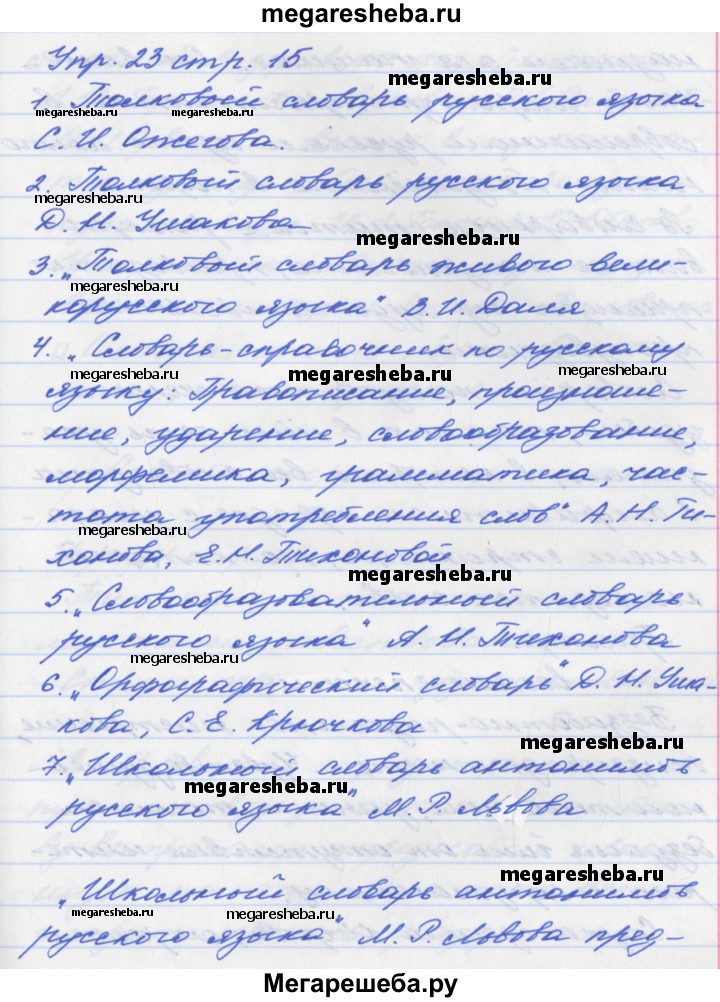 megaresheba.ru
Упр. 23 стр. 15
megaresheba.ru
1. Толковый словарь русского языка
megaresheba.ru megaresheba.ru megaresheba.ru
С. И. Ожегова.
2. Толковый словарь русского языка
megaresheba.ru
Д. Н. Ушакова
megaresheba.ru
3. „Толковый словарь живого вели-
megaresheba.ru
корусского языка" В. И. Даля
4. „Словарь-справочник по русскому
megaresheba.ru megaresheba.ru megaresheba.ru
языку: Правописание, произноше-
ние, ударение, словообразование,
морфемика, грамматика, час-
тота употребления слов" А. Н. Ти-
megaresheba.ru
хонова, Е. Н. Тихоновой
megaresheba.ru
5. „Словообразовательный словарь
русского языка" А. Н. Тихонова
megaresheba.ru
6. „Орфографический словарь" Д. Н. Уша-
кова, С. Е. Крючкова
megaresheba.ru
7. „Школьный словарь антонимов
megaresheba.ru
русского языка" М. Р. Львова
megaresheba.ru
„Школьный словарь антонимов
megaresheba.ru megaresheba.ru
русского языка" М. Р. Львова пред-
Мегарешеба.ру